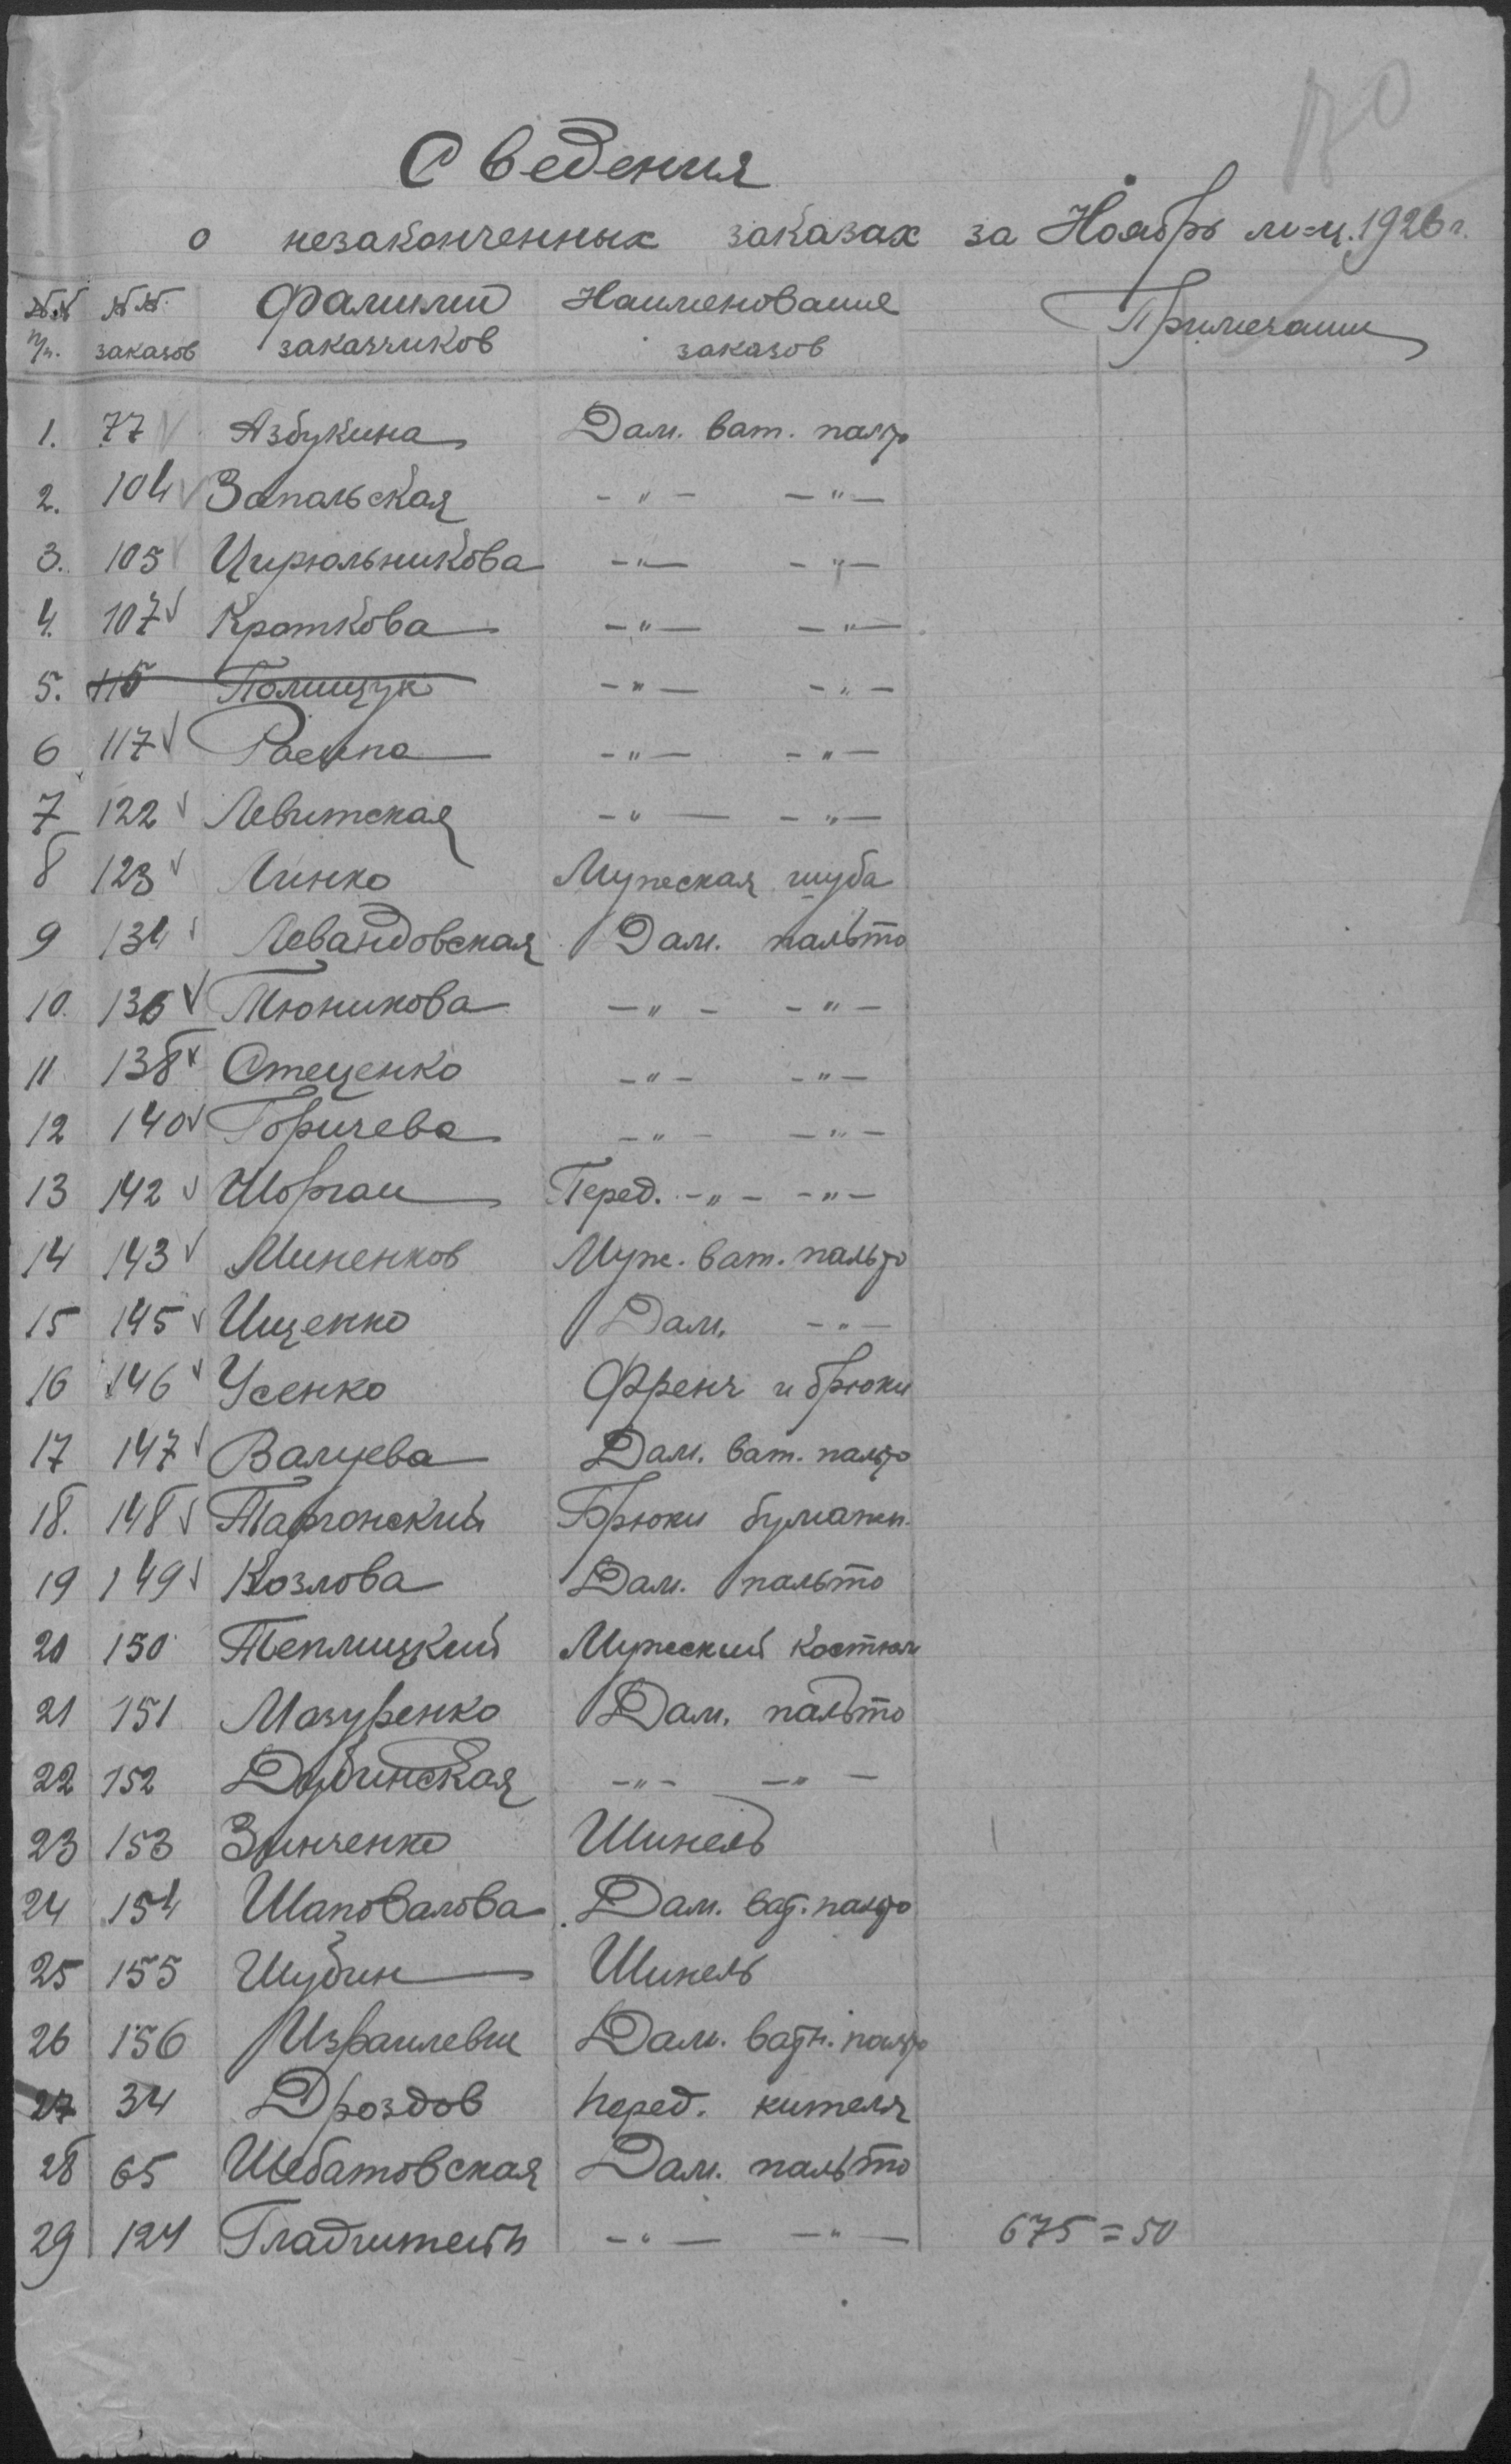 70
Сведения
о незаконченных заказах за Ноябрь м-ц. 1926 г.
№№ п/п. №№ заказов Фамилии заказчиков Наименование заказов Примечание
1. 77 Азбукина Дам. ват. пальто
2. 104 Запальская - " - - " -
3. 105 Цирюльникова - " - - " -
4. 107 Кроткова - " - - " -
5. 115 Полищук - " - - " -
6 117 - " - - " -
7 122 Левитская - " - - " -
8 123 Линко Мужеская шуба
9 134 Левандовская Дам. пальто
10. 136 Тюникова - " - - " -
11 138 Стеценко - " - - " -
12 140 Горичева - " - - " -
13 142 Шорган Перед. - " - - " -
14 143 Миненков Муж. ват. пальто
15 145 Ищенко Дам. - " -
16 146 Усенко Френч и брюки
17 147 Валуева Дам. ват. пальто
18. 148 Таргонский Брюки бумажн.
19 149 Козлова Дам. пальто
20 150 Теплицкий Мужеский костюм
21 151 Мазуренко Дам. пальто
22 152 Дубинская - " - - " -
23 153 Зинченко Шинель
24 154 Шаповалова Дам. ват. пальто
25 155 Шубин Шинель
26 156 Израилевич Дам. ватн. пальто
27 34 Дроздов перед. кителя
28 65 Шебатовская Дам. пальто
29 124 - " - - " - 675 = 50